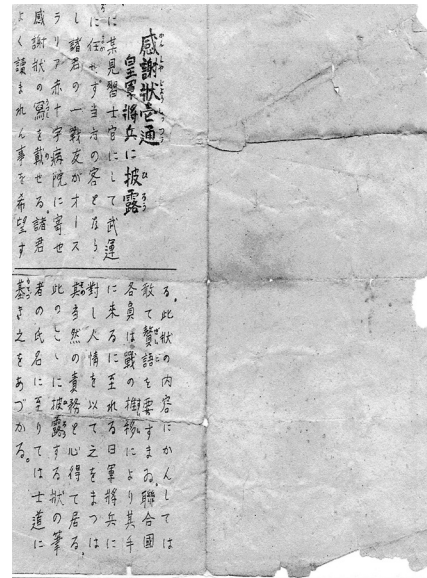 感謝狀壱通
皇軍將兵に披露
に某見習士官にして武運
に任せず当方の客となら
し諸君の一戰友がオース
ラリア赤十字病院に寄せ
感謝狀の寫を載せる。諸君
よく讀まれん事を希望す
る。此狀の内容にかんしては
敢て贅語を要すまゐ。聯合國
各員は戰の推移により其手
に来るに至れる日軍將兵に
對し人情を以て之をまつは
其当然の責務と心得て居る。
此のところに披露する狀の筆
者の氏名に至りては士道に
基き之をあづかる。